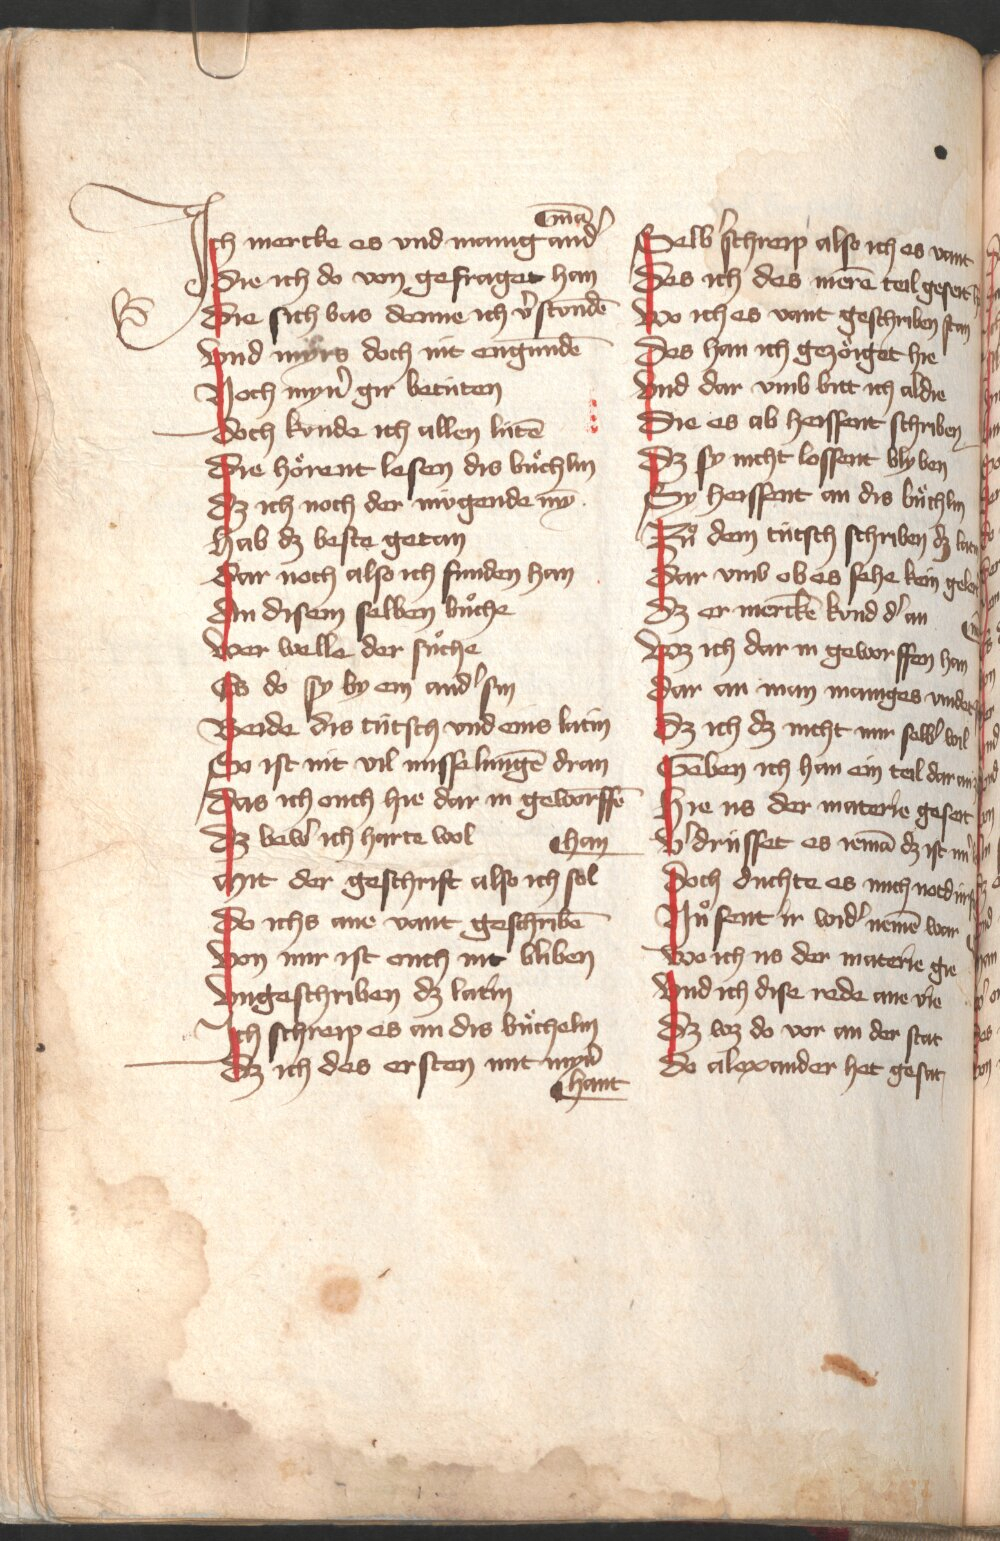 Ich mercke es vnd manig and'
man
Die ich do von gefraget han
Die sich bas denne ich v'stondē
Vnd myrs doch nit engundē
Noch myn' gir betúten
Doch konde ich allen lútē
Die hŏrent lesen dis bůchlin
Dz ich noch der mŭgende myn
Hab dz beste getan
Dar noch also ich funden han
An disem selben bůche
Wer welle der sůche
Es do sy by ein and' sin
Beide dis tútsch vnd eins latin
So ist nit vil misselungē dran
Das ich ouch hie dar in geworffē
han
Dz bew' ich harte wol
Mit der geschrift also ich sol
Do ichs ane vant geschribē
Von mir ist ouch nit bliben
Vngeschriben dz latin
Ich schreip es an dis bůchelin
Dz ich des ersten mit myn'
hant
Selb' schreip also ich es vant
Des ich des merē teil geseit
Wo ich es vant geschriben stan
Des han ich gezŏiget hie
Vnd dar vmb bitt ich al die
Die es ab heissent schriben
Dz sy nicht lossent blyben
Sy heissent an dis bůchlin
Zů dem tútsch schriben dz latin
Dar vmb ob es sehe kein geler
Dz er merckē kond d' an
Wz ich dar in geworffen han
Dar an man maniges vindet
Dz ich dz nicht mir selb' wil
Geben ich han ein teil dar an
Hie us der materie geseit
V'drússet es iemā dz ist mir
Doch duchte es mich notdúrf
Nů sent ir wid' nemē war
Wo ich us der materie gie
Vnd ich dise rede ane vie
Dz wz do vor an der stat
Do alexander het gesat